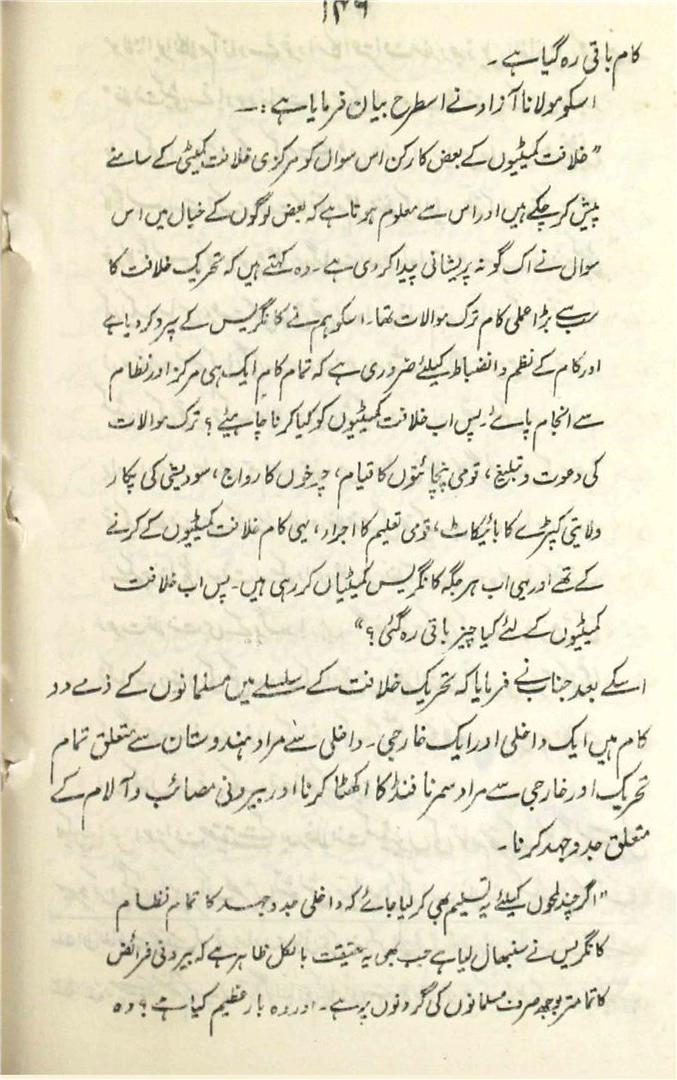 ۱۴۹
کام باقی رہ گیا ہے۔
اسکو مولانا آزاد نے اسطرح بیان فرمایا ہے :۔
”خلافت کمیٹیوں کے بعض کارکن اس سوال کو مرکزی خلافت کمیٹی کے سامنے
پیش کر چکے ہیں اور اس سے معلوم ہوتا ہے کہ بعض لوگوں کے خیال میں اس
سوال نے اک گونہ پریشانی پیدا کر دی ہے۔ وہ کہتے ہیں کہ تحریک خلافت کا
سب سے بڑا عملی کام ترک موالات تھا۔ اسکو ہم نے کانگریس کے سپرد کر دیا ہے
اور کام کے نظم و انضباط کیلئے ضروری ہے کہ تمام کام ایک ہی مرکز اور نظام
سے انجام پائے۔ پس اب خلافت کمیٹیوں کو کیا کرنا چاہیئے؟ ترک موالات
کی دعوت و تبلیغ، قومی پنچائتوں کا قیام، چرخوں کا رواج، سودیشی کی پکار
ولایتی کپڑے کا بائیکاٹ، قومی تعلیم کا اجراء، یہی کام خلافت کمیٹیوں کے کرنے
کے تھے اور یہی اب ہر جگہ کانگریس کمیٹیاں کر رہی ہیں۔ پس اب خلافت
کمیٹیوں کے لئے کیا چیز باقی رہ گئی؟“
اسکے بعد جناب نے فرمایا کہ تحریک خلافت کے سلسلے میں مسلمانوں کے ذمے دو
کام ہیں ایک داخلی اور ایک خارجی۔ داخلی سے مراد ہندوستان سے متعلق تمام
تحریک اور خارجی سے مراد سمرنا فنڈ کا اکھٹا کرنا اور بیرونی مصائب و آلام کے
متعلق جدوجہد کرنا۔
”اگر چند لمحوں کیلئے یہ تسلیم بھی کر لیا جائے کہ داخلی جدوجہد کا تمام نظام
کانگریس نے سنبھال لیا ہے جب بھی یہ حقیقت بالکل ظاہر ہے کہ بیرونی فرائض
کا تمامتر بوجھ صرف مسلمانوں کی گردنوں پر ہے۔ اور وہ بار عظیم کیا ہے؟ وہ